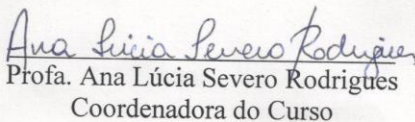 Ana Lúcia Severo Rodrigues
Profa. Ana Lúcia Severo Rodrigues
Coordenadora do Curso